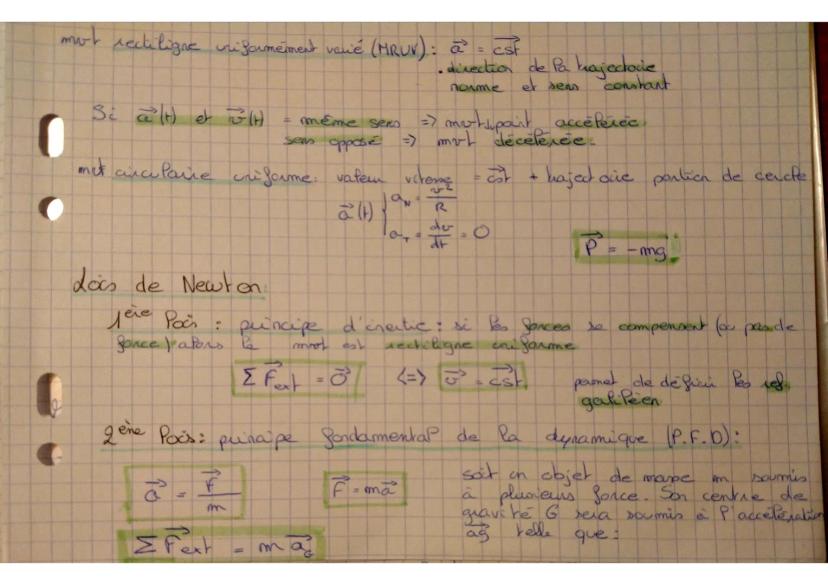 mvt rectiligne uniformément varié (MRUV) : a⃗ = cst⃗
. direction de la trajectoire
norme et sens constant
Si a⃗(t) et v⃗(t) = même sens => mvt dit accélérée.
sens opposé => mvt décélérée.
mvt circulaire uniforme: valeur vitesse = cst⃗ + trajectoire portion de cercle
a⃗(t) { a_N = v²/R
a_T = dv/dt = 0
P⃗ = -mg
Lois de Newton
1ère lois : principe d'inertie : si les forces se compensent (ou pas de
force) alors le mvt est rectiligne uniforme
Σ F⃗ext = 0⃗ <=> v⃗ = cst⃗ permet de définir les ref
galiléen
2ème lois : principe fondamental de la dynamique (P.F.D) :
a⃗ = F⃗/m F⃗ = ma⃗
soit un objet de masse m soumis
à plusieurs force. Son centre de
gravité G sera soumis à l'accélération
a⃗G telle que :
Σ F⃗ext = m a⃗G